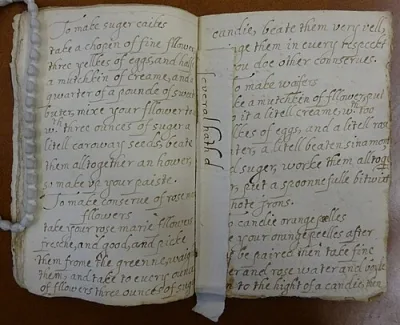 To make suger cakes
take a chopin of fine fllower
three yelkes of eggs, and half
a mutchkin of creame, and a
quarter of a pound of sweit
buter, mixe your fllower ten
wth three ounces of suger a
litell caroway seeds, beate
them alltogether an hower,
so make up your paiste.
To make conserve of rosema
fllowers
take your rose marie fllowers
freshe, and good, and picke
them frome the greenne, waige
them, and take to every ounce
of fllowers three ounces of sug
severall hath
candie, beate them very well,
them in every respeckt
you doe other connserves.
To make wafers
a mutchkin of fllower, put
to it a litell creame, wth too
yelkes of eggs, and a litell rose
water, a litell beaten sinamont
and suger, worke them alltog
put a spoonnefulle bitwixt
note Irons.
To candie orange peelles
your orunge peelles after
be paired then take fine
suger and rose water and
to the hight of a candie, then